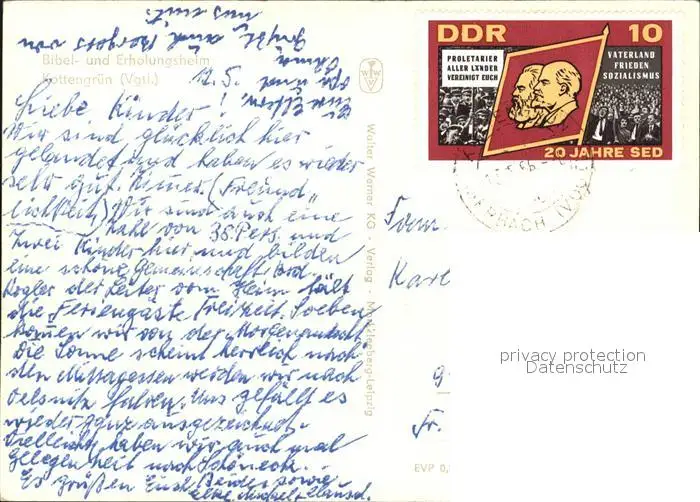 Bibel- und Erholungsheim
Kottengrün (Vgtl.)
12.5.
Liebe Kinder!
Wir sind glücklich hier
gelandet und haben es wieder
sehr gut. Zimer. (Freund
lichkeit) Wir sind auch eine
von 36 Pers. und
Zwei Kinder hier und bilden
eine schöne Gemeinschaft
Kogler der Leiter vom Heim hält
die Feriengäste Freiheit. Soeben
komen wir von der Morgenandacht
Die Sonne scheint herrlich nach
den Mittagessen werden wir nach
Oelsnitz fahren. Uns gefällt es
wieder ganz ausgezeichnet.
Vielleicht haben wir auch mal
Gelegenheit nach Schöneck.
Es grüßen Euch Beide sowie
Walter Werner KG - Verlag - Markkleeberg-Leipzig
EVP 0,
DDR 10
PROLETARIER
ALLER LÄNDER
VEREINIGT EUCH
VATERLAND
FRIEDEN
SOZIALISMUS
20 JAHRE SED
Fam
Karl
Fr.
privacy protection
Datenschutz